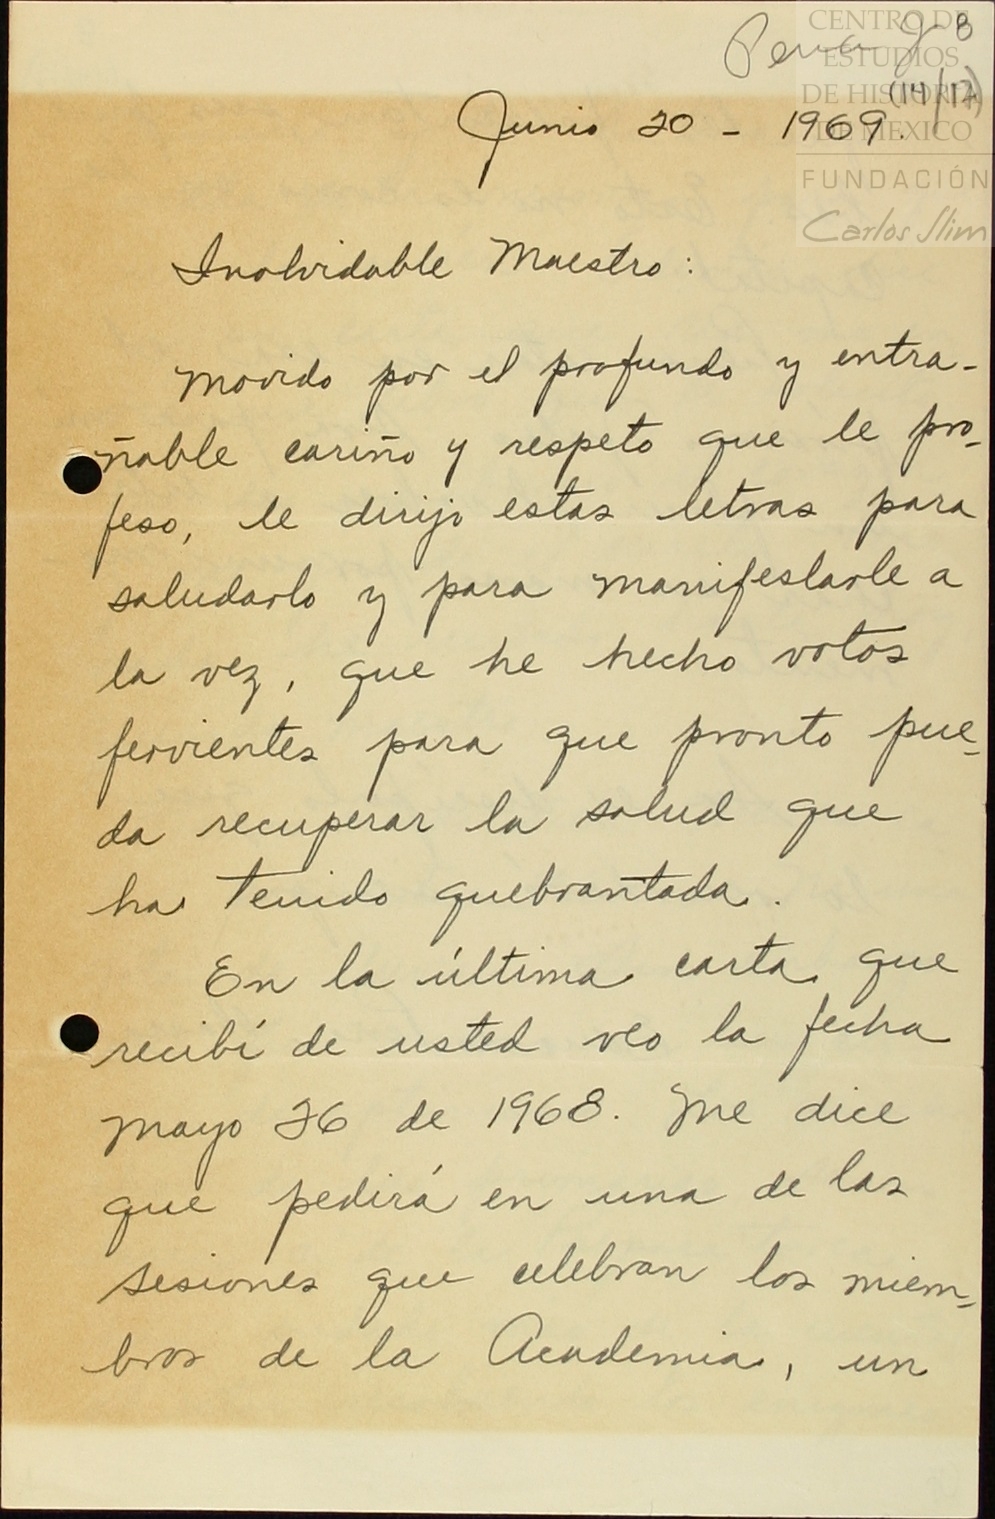 8
CENTRO DE
ESTUDIOS
DE HISTORIA
DE MEXICO
(14/17)
FUNDACIÓN
Carlos Slim
Junio 20 - 1969.
Inolvidable Maestro:
Movido por el profundo y entra-
ñable cariño y respeto que le pro-
feso, le dirijo estas letras para
saludarlo y para manifestarle a
la vez, que he hecho votos
fervientes para que pronto pue-
da recuperar la salud que
ha tenido quebrantada.
En la última carta que
recibí de usted veo la fecha
Mayo 26 de 1968. Me dice
que pedirá en una de las
sesiones que celebran los miem-
bros de la Academia, un